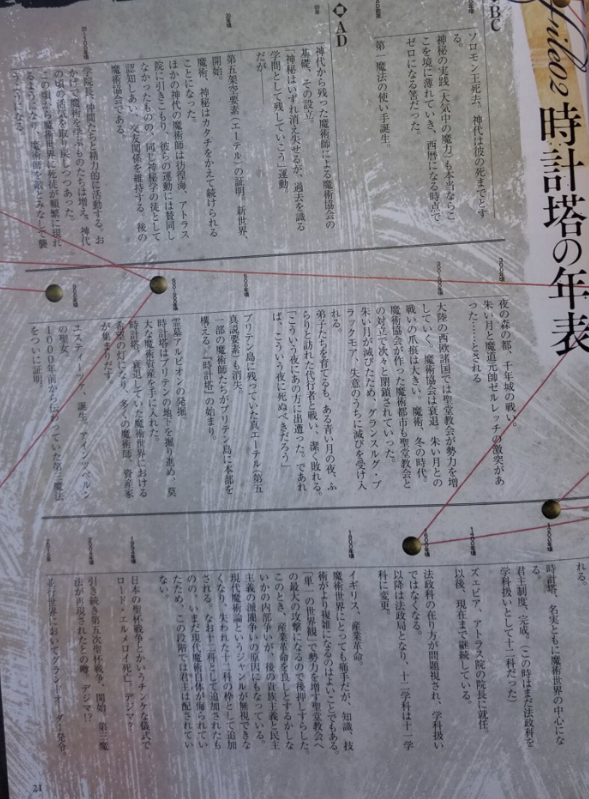 File02
時計塔の年表
BC
ソロモン王死去。神代は彼の死までとす
る。
神秘の実践（大気中の魔力）も本当ならこ
こを境に薄れていき、西暦になる時点で
ゼロになる筈だった。
「第一魔法の使い手誕生。
AD
神代から残った魔術師による魔術協会の
基礎、その設立。
「神秘はいずれ消え去せるが、過去を識る
学問として残していこう」運動
だが――
第五架空要素（エーテル）の証明。新世界、
開始。
魔術、神秘はカタチをかえて続けられる
ことになった。
ほかの神代の魔術師は彷徨海、アトラス
院に引きこもり、彼らの運動には賛同し
なかったものの、同じ神秘学の徒として
認知しあい、交友関係を維持する。後の
魔術協会である。
学院長、仲間たちと精力的に活動する。お
かげで魔術を学ぶものたちは増え、神代
の頃の活気を取り戻しつつあった。
この頃から魔術世界に死徒が頻繁に現れ
るようになり、魔術師を敵とみなして襲
うようになる。
夜の森の都、千年城の戦い。
朱い月と魔道元帥ゼルレッチの激突があ
った……とされる
大陸の西欧諸国では聖堂教会が勢力を増
していく。魔術協会は衰退。朱い月との
戦いの爪痕は大きい。魔術、冬の時代。
魔術協会が作った魔術都市も聖堂教会と
の対立で次々と閉鎖されていった。
朱い月が滅びたため、グランスルグ・ブ
ラックモア、失意のうちに滅びを受け入
れる。
弟子たちを育てるも、ある青い月の夜、ふ
らりと訪れた代行者と戦い、潔く敗れる。
「こういう夜にあの方に出遭った。であれ
ば、こういう夜に死ぬべきだろう」
ブリテン島に残っていた真エーテル（第五
真説要素）も消失。
一部の魔術師たちがブリテン島に本部を
構える。「時計塔」の始まり。
霊墓アルビオンの発掘。
時計塔はブリテンの地下を掘り進め、莫
大な魔術資産を手に入れた。
時計塔、衰退していた魔術世界における
希望の灯になり、多くの魔術師、資産家
が集まりだす
エスティーツァ、誕生。アインツベルン
の聖女。
1000年前から伝わっていた第三魔法
をついに証明。
れる。
時計塔、名実ともに魔術世界の中心にな
る。
君主制度、完成。（この時はまだ法政科を
学科扱いとして十二科だった）
ズェピア、アトラス院の院長に就任。
以後、現在まで継続している。
法政科の在り方が問題視され、学科扱い
ではなくなる。
以降は法政局となり、十二学科は十一学
科に変更。
イギリス、産業革命。
魔術世界にとっても痛手だが、知識、技
術がより複雑になるのはよいことでもある。
「単一の世界観」で勢力を増す聖堂教会へ
の最大の攻撃になるので後押しすらした。
このとき、産業革命を良しとするかしな
いかの内部争いが、後の貴族主義と民主
主義の派閥争いの原型にもなっている。
現代魔術論というジャンルが無視できな
くなり、失われた十二科の枠として追加
される。なお十二科として追加されたも
のの、いまだ現代魔術自体が侮られてい
たため、この段階では君主は配されてい
ない。
日本の聖杯戦争とかいうチンケな儀式で
ロード・エルメロイ死亡。デジマ？
引き続き第五次聖杯戦争、開始。第三魔
法が再現されたとの噂。デジマ!?
並行世界においてグランドオーダー発令。
21